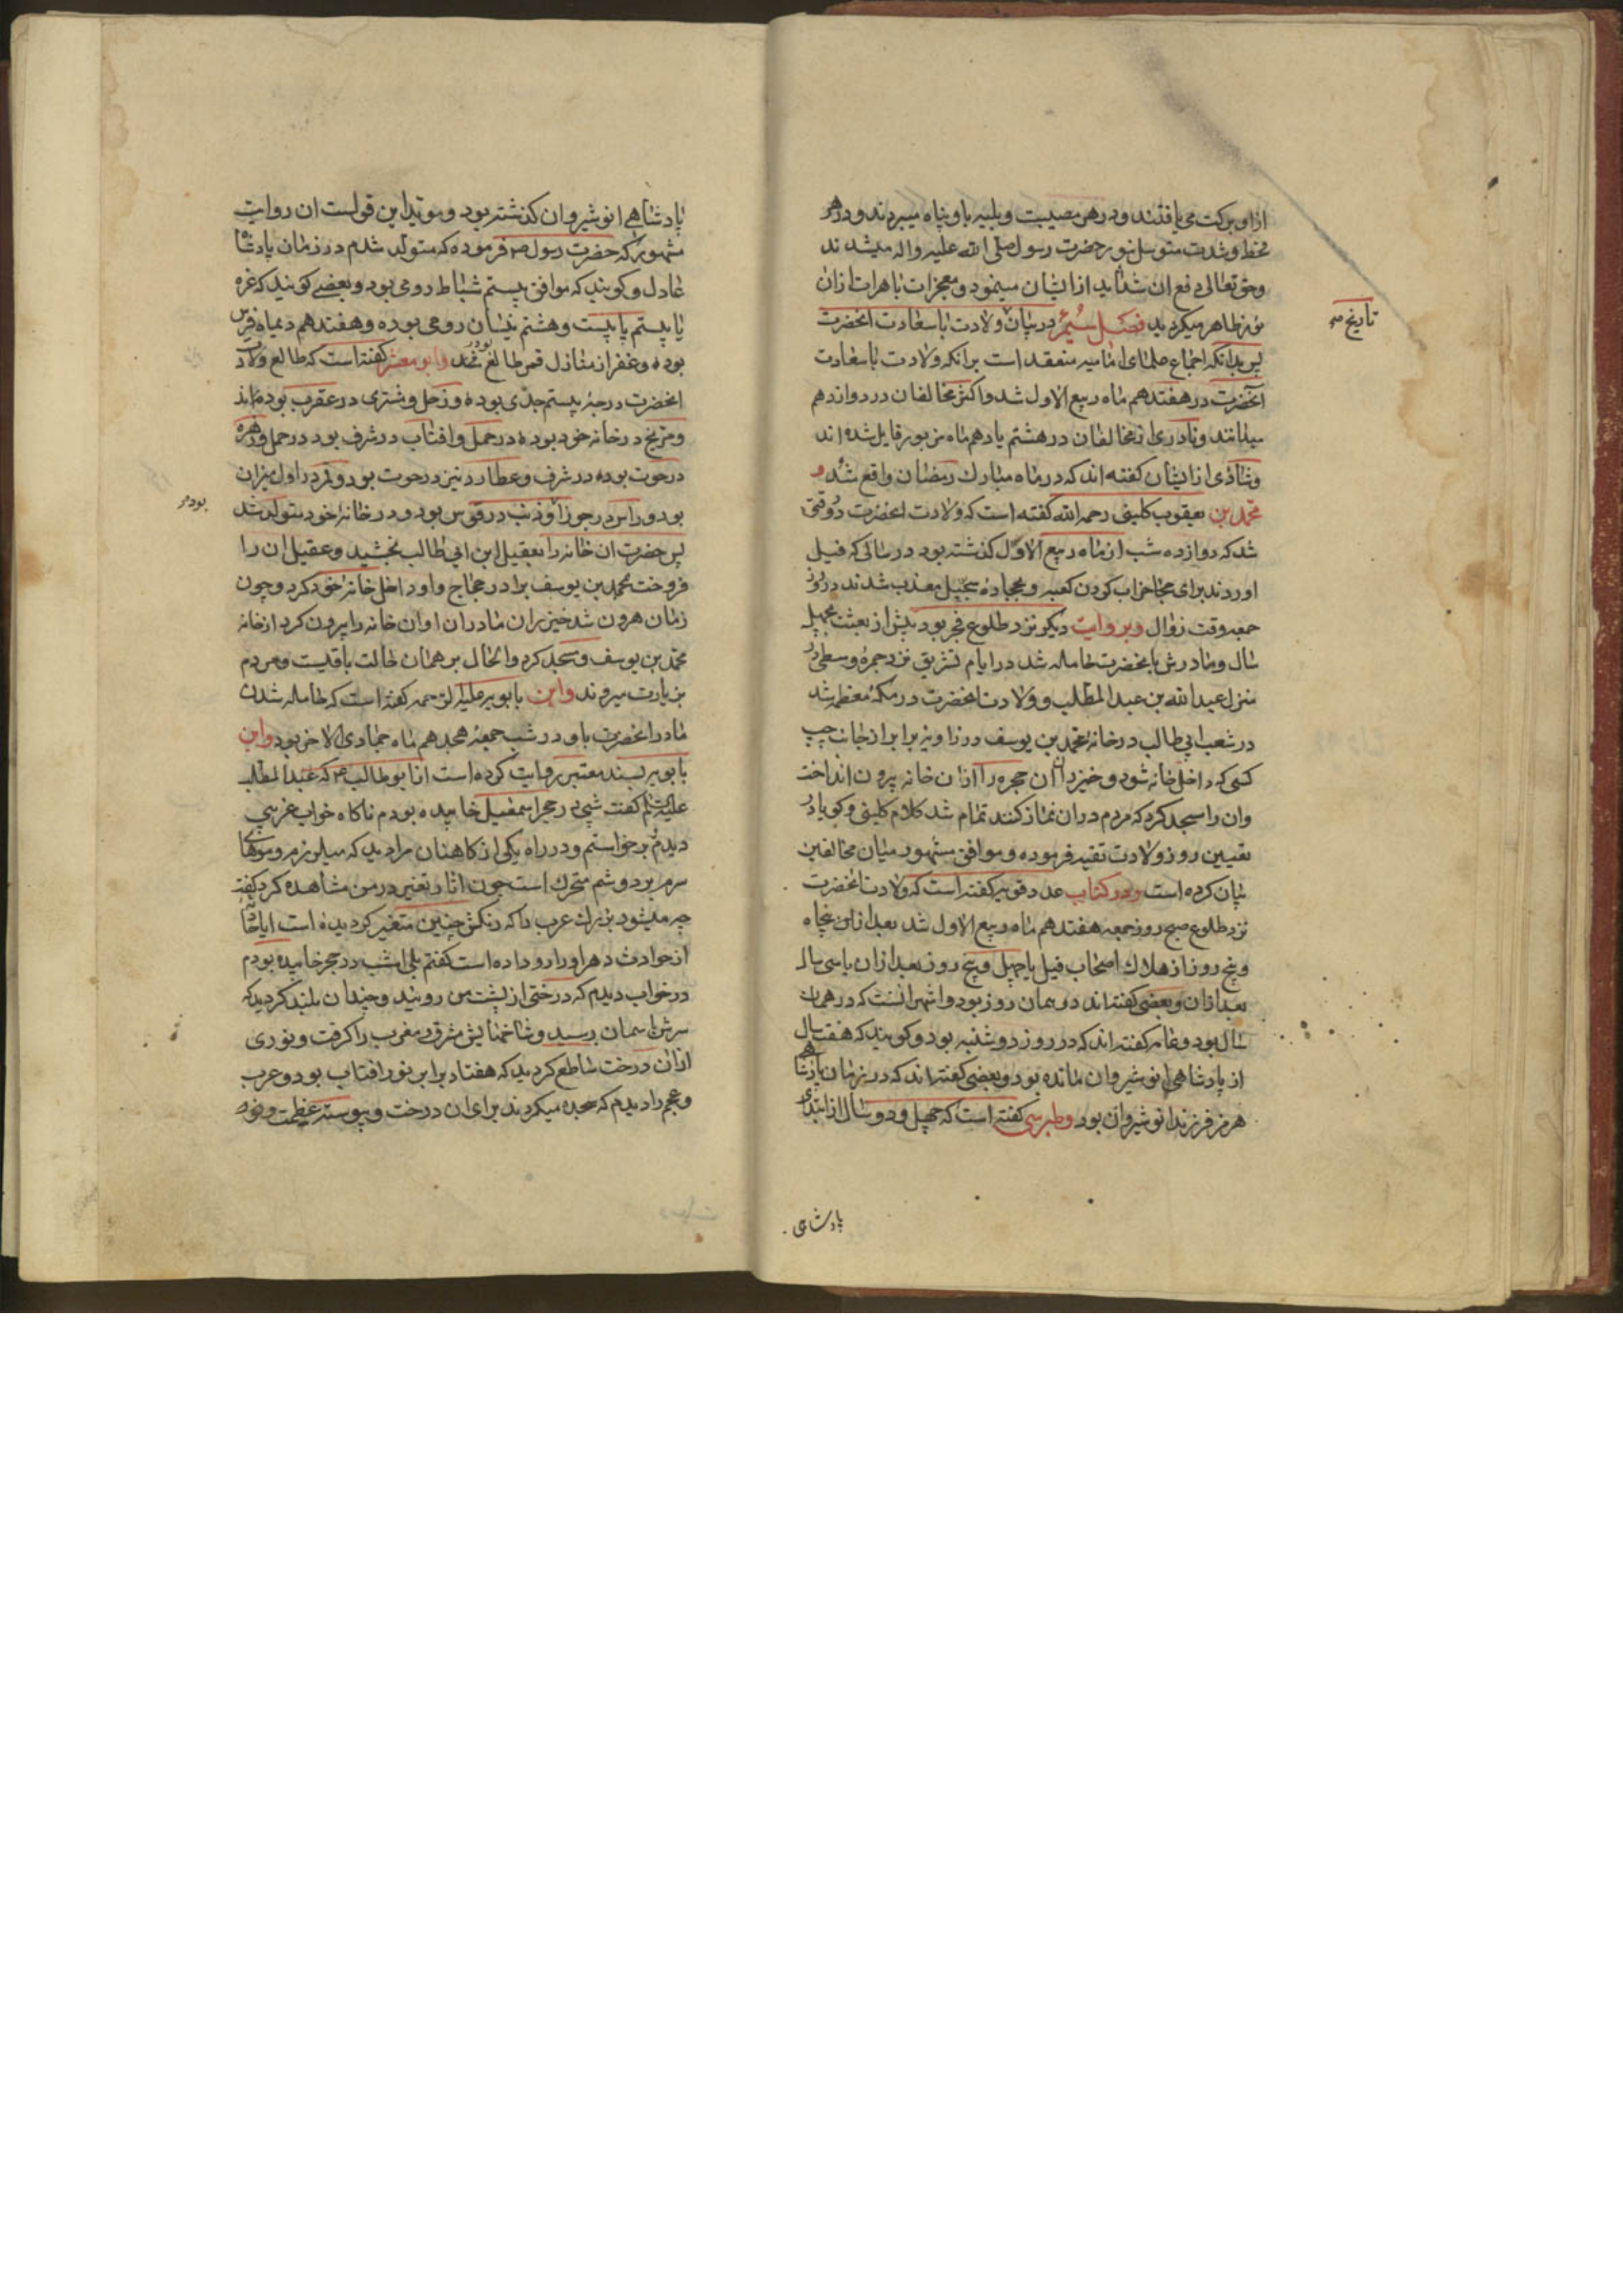 ازاو برکت می یافتند و در هر مصیبت و بلییه باو پناه میبردند و در هر
قحط و شدت متوسل بنور حضرت رسول صلی الله علیه واله میشدند
و حق تعالی دفع ان شداید از ایشان مینمود و معجزات باهرات ازان
نور ظاهر میکردید فصل سیم در بیان ولادت باسعادت انحضرت
تاریخ
پس بدانکه اجماع علمای امامیه منعقد است برانکه ولادت باسعادت
آنحضرت در هفتدهم ماه ربیع الاول شد و اکثر مخالفان در دوازدهم
میدانند و نادری از مخالفان در هشتم یا دهم ماه مزبور قایل شده اند
و شاذی از ایشان کفته اند که در ماه مبارك رمضان واقع شد و
محمد بن یعقوب کلینی رحمه الله کفته است که ولادت انحضرت در وقتی
شد که دوازده شب از ماه ربیع الاوّل کذشته بود در سالی که فیل
اوردند برای خراب کردن کعبه و بحجاره سجیل معذب شدند در روز
جمعه وقت زوال و بروایت دیکر نزد طلوع فجر بود پیش از بعثت بچهل
سال و مادرش بانحضرت حامله شد در ایام تشریق نزد جمره وسطی در
منزل عبدالله بن عبدالمطلب و ولادت انحضرت در مکه معظمه شد
در شعب ابی طالب در خانه محمد بن یوسف در زاویه برابر از جانب چپ
کسی که داخل خانه شود و خیزران ان حجره را ازان خانه بیرون انداخت
وان را مسجد کرد که مردم دران نماز کنند تمام شد کلام کلینی و کویا در
تعیین روز ولادت تقیه فرموده و موافق مشهور میان مخالفین
بیان کرده است و در کتاب عدد قویه کفته است که ولادت انحضرت
نزد طلوع صبح روز جمعه هفتدهم ماه ربیع الاول شد بعد از پنجاه
و پنج روز از هلاك اصحاب فیل یا چهل و پنج روز بعد ازان یا سی سال
بعد ازان و بعضی کفته اند در همان روز بود و اشهر انست که در همان
سال بود و عامه کفته اند که در روز دوشنبه بود و کویند که هفت سال
از پادشاهی انوشیروان مانده بود و بعضی کفته اند که در زمان پادشاهی
هرمز فرزند انوشیروان بود و طبرسی کفته است که چهل و دو سال از ابتدای
پادشاهی
پادشاهی انوشیروان کذشته بود و موید این قولست ان روایت
مشهور که حضرت رسول ص فرموده که متولد شدم در زمان پادشاه
عادل و کویند که موافق بیستم شباط رومی بود و بعضی کویند که غره
یا بیستم یا بیست و هشتم نیسان رومی بوده و هفتدهم دیماه فرس
بوده و غفر از منازل قمر طالع بود و ابو معشر کفته است که طالع ولادت
انحضرت درجه بیستم جدی بوده و زحل و مشتری در عقرب بوده اند
و مریخ در خانه خود بوده در حمل و افتاب در شرف بود در حمل و زهره
در حوت بوده در شرف و عطارد نیز در حوت بود و قمر در اول میزان
بود و راس در جوزا و ذنب در قوس بود و در خانه خود متولد شد
بود
پس حضرت ان خانه را بعقیل ابن ابی طالب بخشید و عقیل ان را
فروخت بمحمد بن یوسف برادر حجاج و او داخل خانه خود کرد و چون
زمان هرون شد خیزران مادر ان او ان خانه را بیرون کرد از خانه
محمد بن یوسف و مسجد کرد و الحال بر همان حالت باقیست و مردم
بزیارت میروند و ابن بابویه علیه الرحمه کفته است که حامله شدن
مادر انحضرت باو در شب جمعه هجدهم ماه جمادی الاخر بود و ابن
بابویه بسند معتبر روایت کرده است از ابوطالب که عبدالمطلب
علیه السلام کفت شبی در حجر اسمعیل خابیده بودم ناکاه خواب غریبی
دیدم برخواستم و در راه یکی از کاهنان مرا دید که میلرزم و موهای
سرم بر دوشم متحرك است چون اثار تغییر در من مشاهده کرد کفت
چه میشود بزرك عرب را که رنکش چنین متغیر کردیده است ایا حادثه
از حوادث دهر او را رو داده است کفتم بلی امشب در حجر خابیده بودم
در خواب دیدم که درختی از پشت من رویید و چندان بلند کردید که
سرش باسمان رسید و شاخهایش مشرق و مغرب را کرفت و نوری
ازان درخت ساطع کردید که هفتاد برابر نور افتاب بود و عرب
و عجم را دیدم که سجده میکردند برای ان درخت و پیوسته عظمت و نور